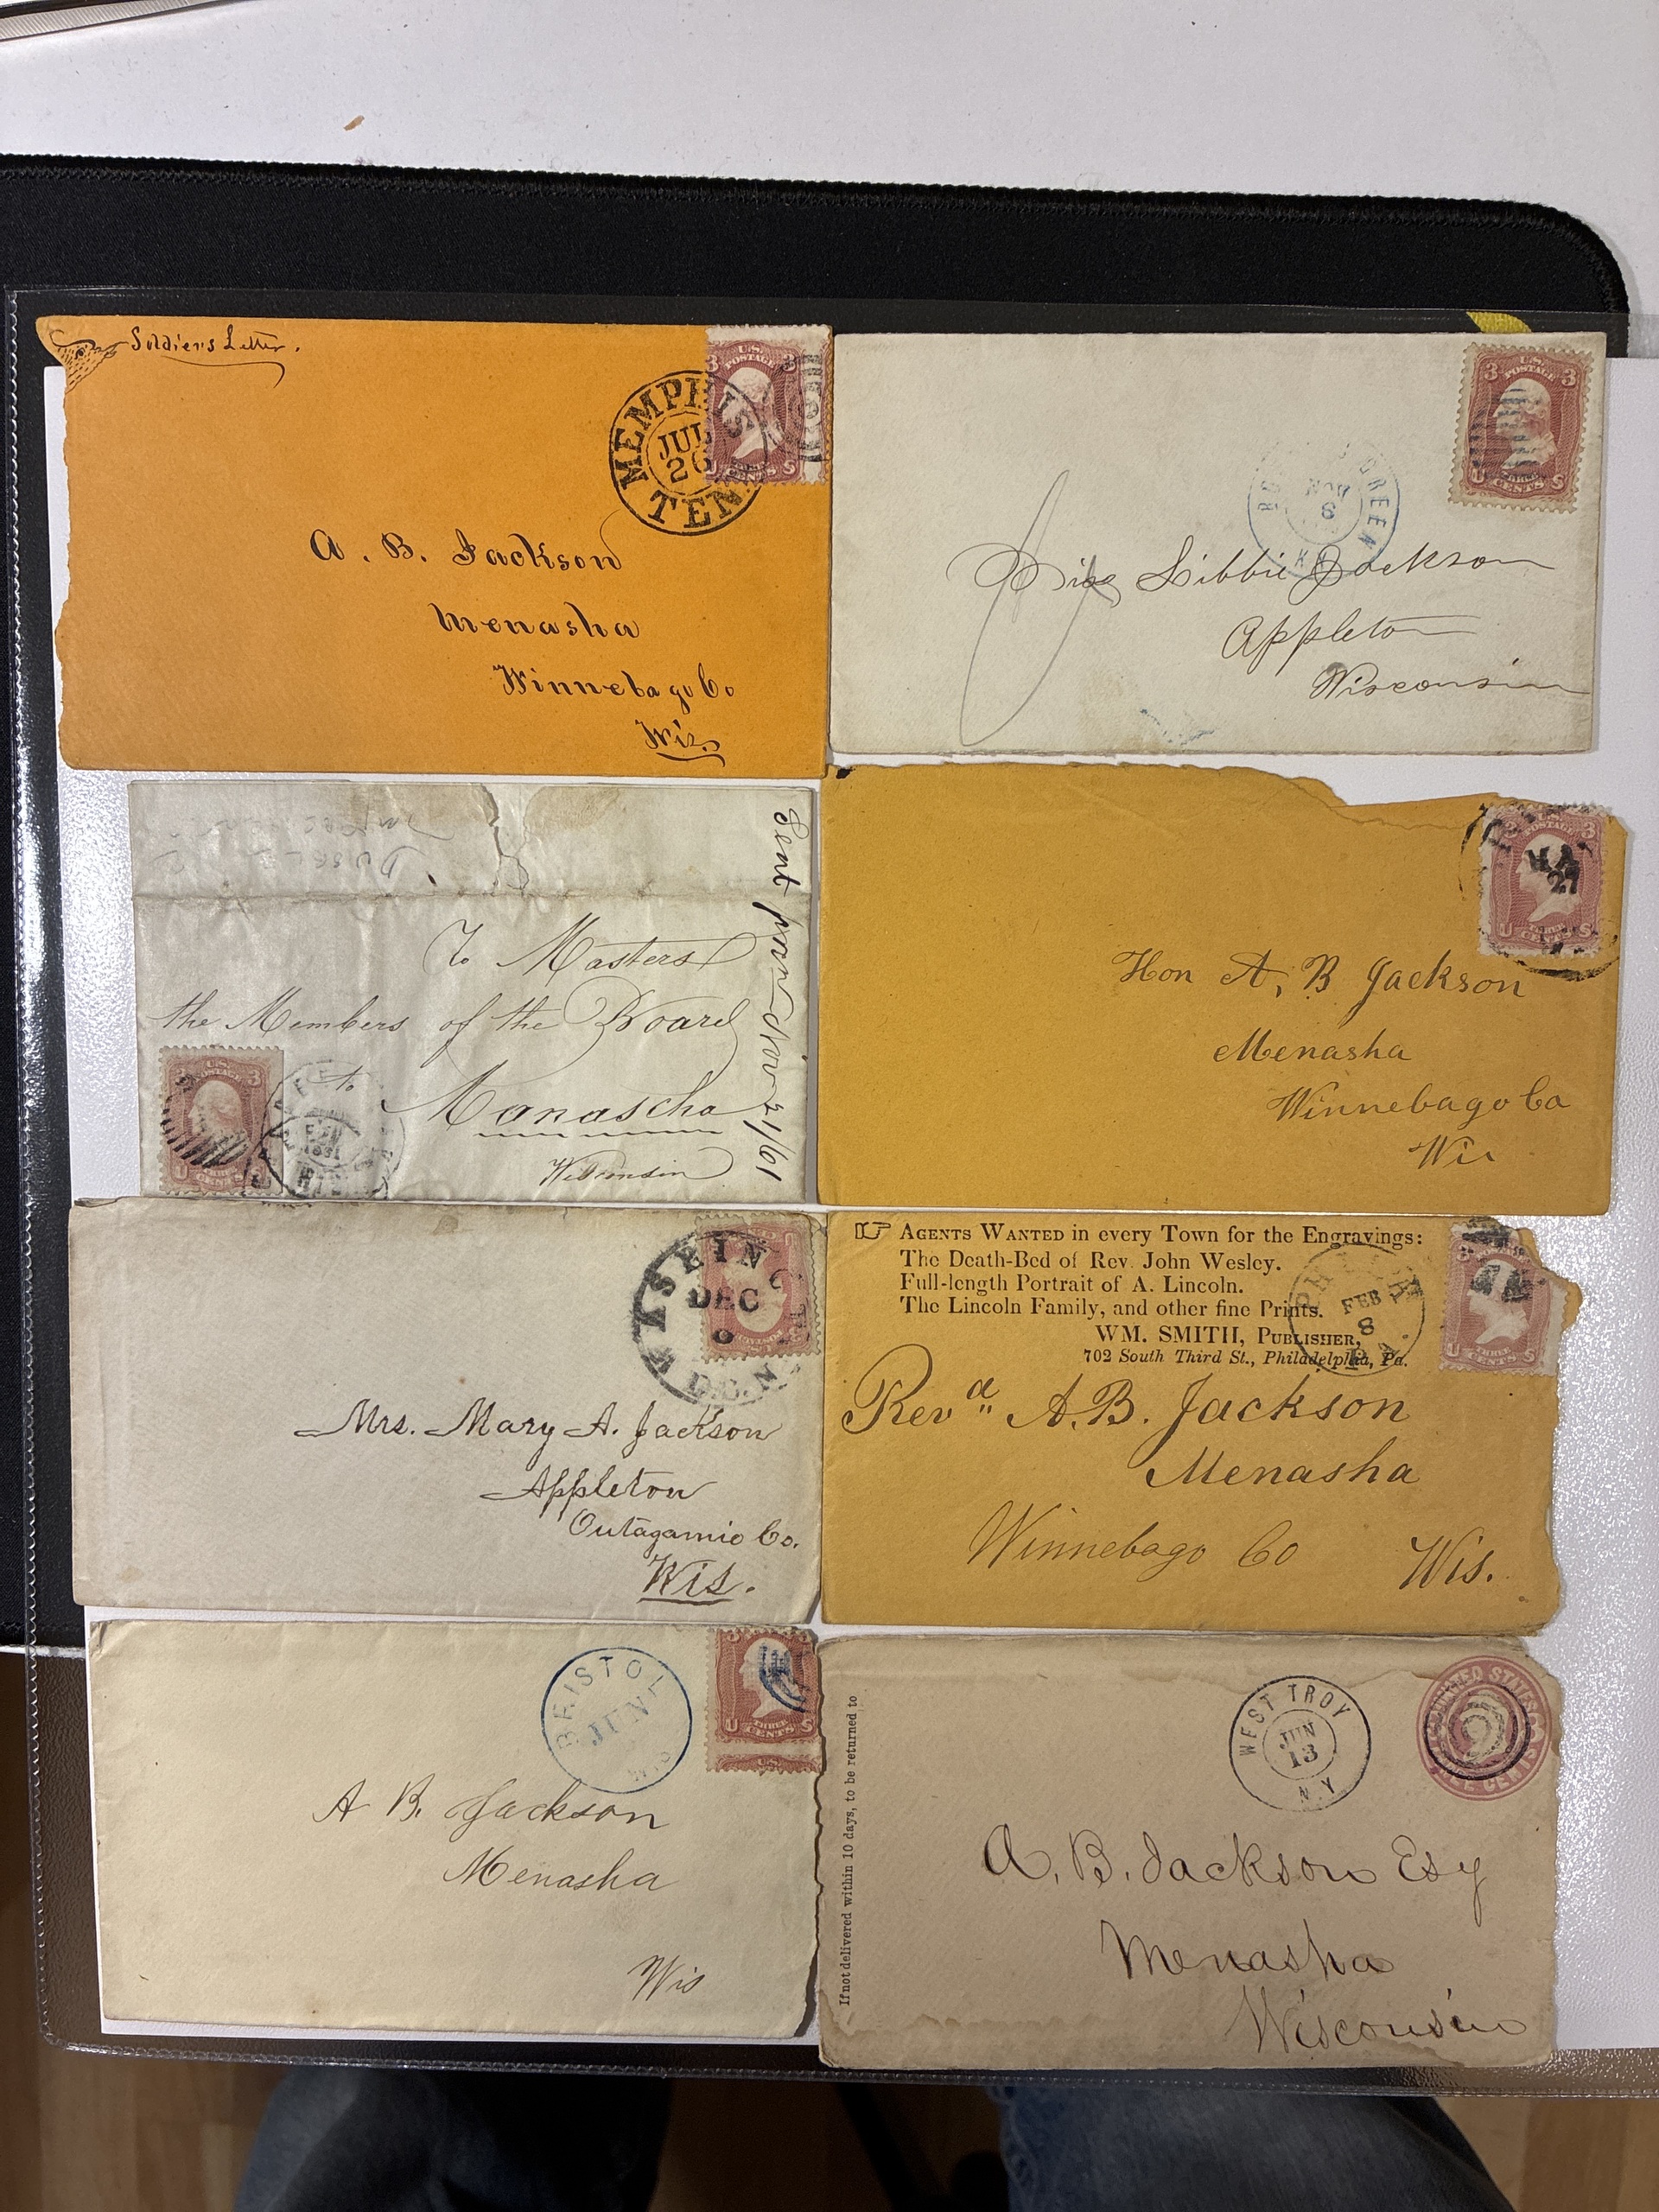 Soldiers Letter.
MEMPHIS
JUL
26
TEN
U.S.
POSTAGE
3 3
U S
CENTS
A. B. Jackson
Menasha
Winnebago Co
Wis.
U.S.
POSTAGE
3 3
U S
CENTS
GREEN
NOV
8
Miss Libbie Jackson
Appleton
Wisconsin
Sent per Nov 21/61
To Masters
the Members of the Board
to
Manascha
Wisconsin
POSTAGE
3
27
U S
Hon A, B Jackson
Menasha
Winnebago Co
Wis
WASHING
DEC
D.C.
Mrs. Mary A. Jackson
Appleton
Outagamie Co.
Wis.
AGENTS WANTED in every Town for the Engravings:
The Death-Bed of Rev. John Wesley.
Full-length Portrait of A. Lincoln.
The Lincoln Family, and other fine Prints.
WM. SMITH, PUBLISHER,
702 South Third St., Philadelphia, Pa.
FEB
8
U S
CENTS
Revd A. B. Jackson
Menasha
Winnebago Co Wis.
BRISTOL
JUN
U THREE S
CENTS
A B. Jackson
Menasha
Wis
If not delivered within 10 days, to be returned to
WEST TROY
JUN
13
N.Y
UNITED STATES
THREE CENTS
A. B. Jackson Esq
Menasha
Wisconsin